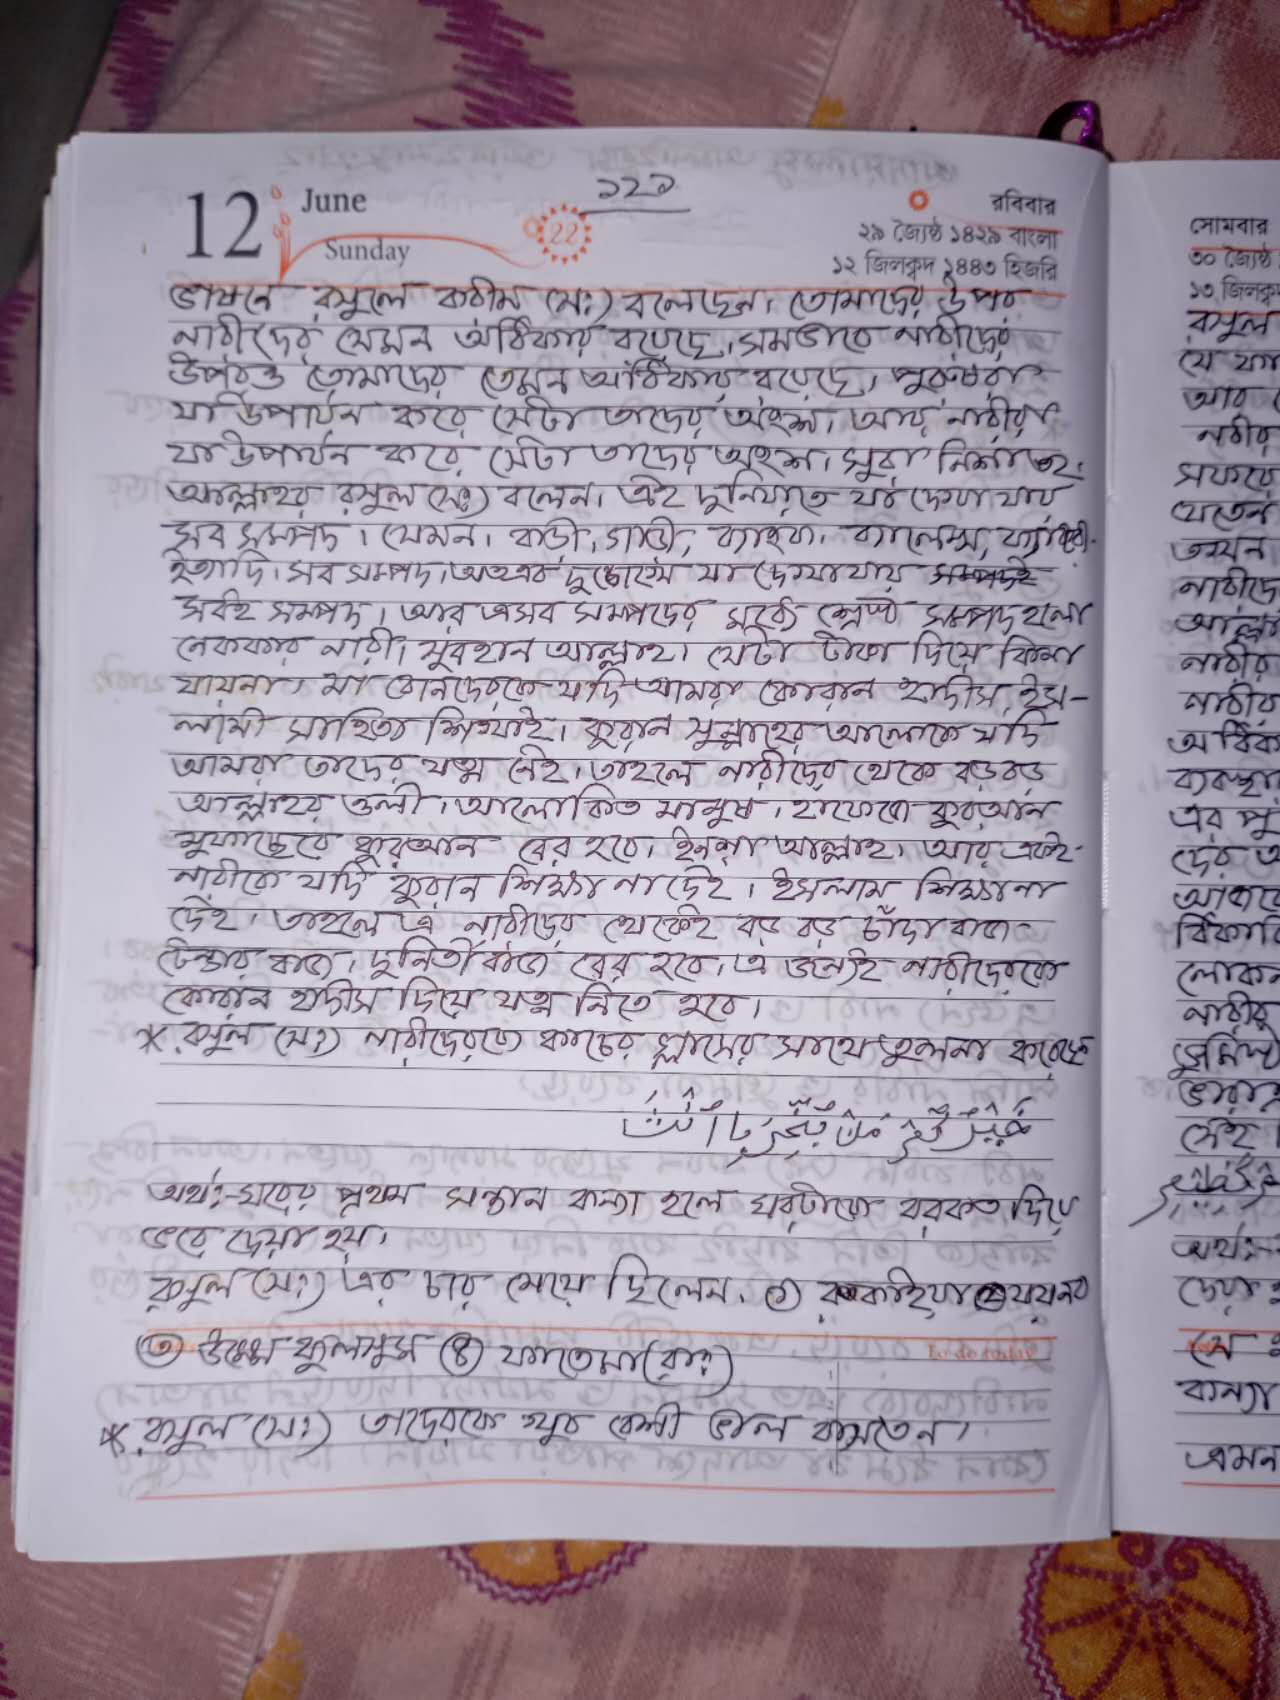 12 June
Sunday
22
১২৯
রবিবার
২৯ জ্যৈষ্ঠ ১৪২৯ বাংলা
১২ জিলক্বদ ১৪৪৩ হিজরি
ভাষনে রসুলে কারীম (সঃ) বলেছেন। তোমাদের উপর
নারীদের যেমন অধিকার রয়েছে, সমভাবে নারীদের
উপরও তোমাদের তেমন অধিকার রয়েছে, পুরুষরা
যা উপার্যন করে সেটা তাদের অংশ। আর নারীরা
যা উপার্যন করে সেটা তাদের অংশ। সুরা নিশা
আল্লাহর রসুল (সঃ) বলেন। এই দুনিয়াতে যা দেখা যায়
সব সম্পদ। যেমন। বাড়ী, গাড়ী, ব্যাংক। ব্যালেন্স,
ইত্যাদি। সব সম্পদ, অতএব দুচোখে যা দেখাযায় সম্পদই
সবই সম্পদ। আর এসব সম্পদের মধ্যে শ্রেষ্ঠ সম্পদ হলো
নেককার নারী। সুবহান আল্লাহ। যেটা টাকা দিয়ে কিনা
যায়না। মা বোনদেরকে যদি আমরা কোরান হাদীস, ইস-
লামী সাহিত্য শিখাই। কুরান সুন্নাহের আলোকে যদি
আমরা তাদের যত্ন নেই। তাহলে নারীদের থেকে বড় বড়
আল্লাহর ওলী। আলোকিত মানুষ। হাফেযে কুরআন
মুফাছেরে কুরআন বের হবে। ইনশা আল্লাহ। আর এই
নারীকে যদি কুরান শিক্ষা না দেই। ইসলাম শিক্ষা না
দেই। তাহলে এ নারীদের থেকেই বড় বড় চাঁদা বাজ
টেন্ডার বাজ। দুনিতী বাজ বের হবে। এ জন্যই নারীদেরকে
কোরান হাদীস দিয়ে যত্ন নিতে হবে।
* রসুল (সঃ) নারীদেরকে কাচের গ্লাসের সাথে তুলনা করেছে
অর্থঃ- ঘরের প্রথম সন্তান কন্যা হলে ঘরটাকে বরকত দিয়ে
ভরে দেয়া হয়।
রসুল (সঃ) এর চার মেয়ে ছিলেন। ① রুকাইয়া ② যয়নব
③ উম্মে কুলসুম ④ ফাতেমা (রাঃ)
To do today
* রসুল (সঃ) তাদেরকে খুব বেশী ভাল বাসতেন।
সোমবার
৩০ জ্যৈষ্ঠ
১৩ জিলক্ব
রসুল
যে যা
আর
নারীর
সফরে
যেতেন
তখন
নারীদে
আল্লা
নারীর
নারীর
অধিকা
ব্যবস্থা
এর পু
দের
লোকন
নারীর
সেই
অর্থঃ-
দেয়া
কন্যা
এমন